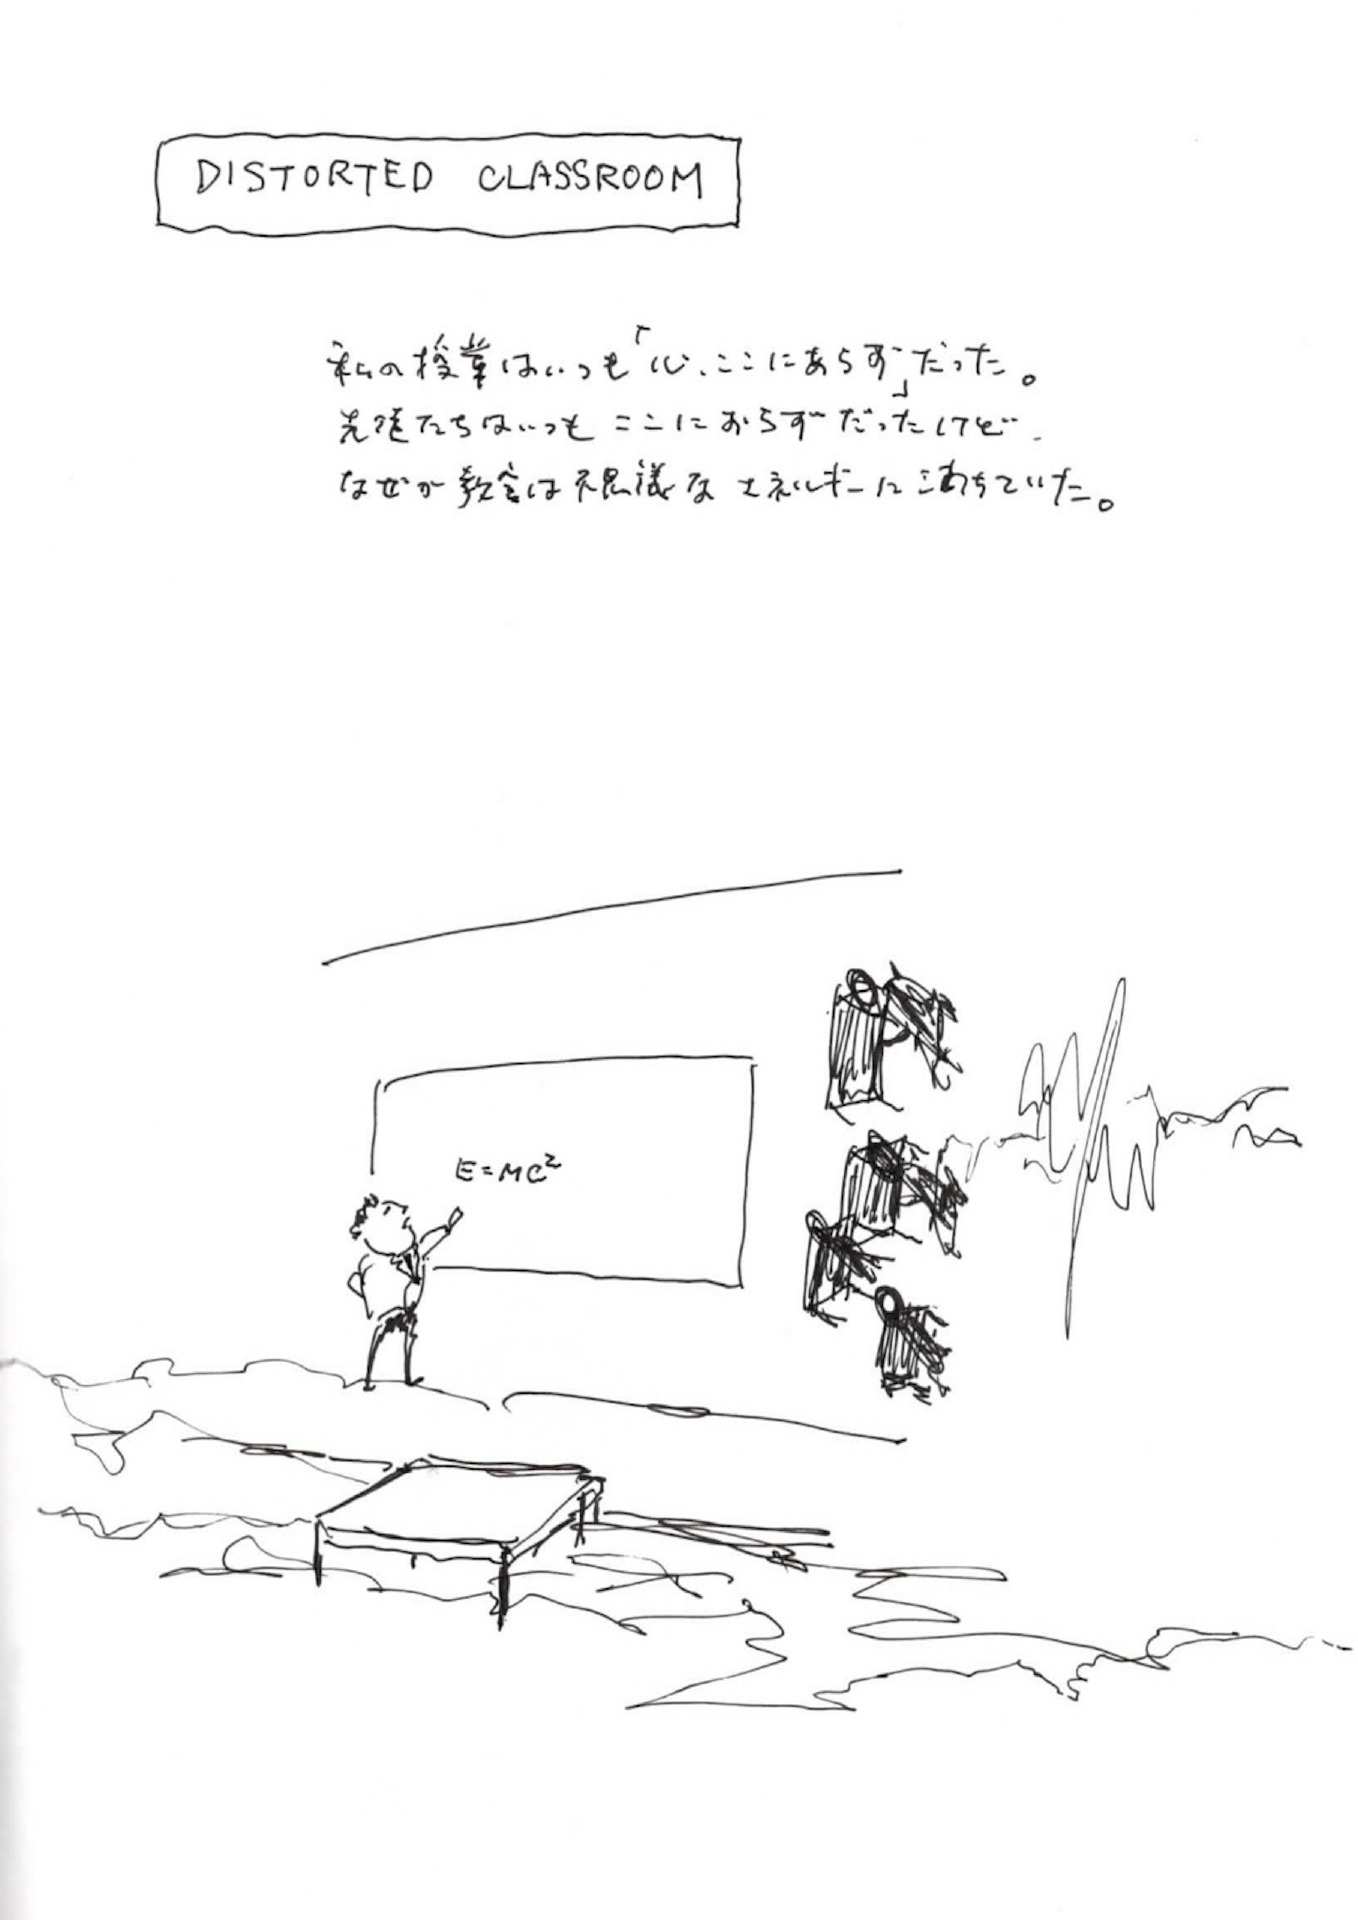 DISTORTED CLASSROOM
私の授業はいつも「心、ここにあらず」だった。
生徒たちはいつもここにおらずだったけど、
なぜか教室は不思議なエネルギーに満ちていた。
E=MC²